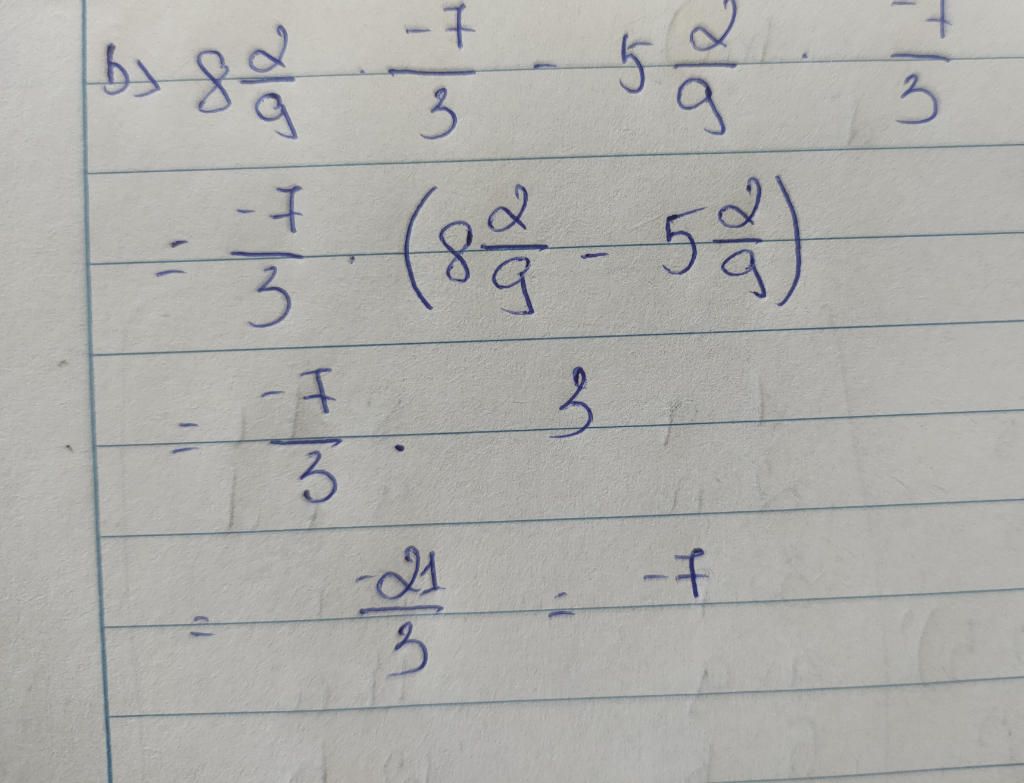 b) 8 2/9 . -7/3 - 5 2/9 . -7/3
= -7/3 . (8 2/9 - 5 2/9)
= -7/3 . 3
= -21/3 = -7